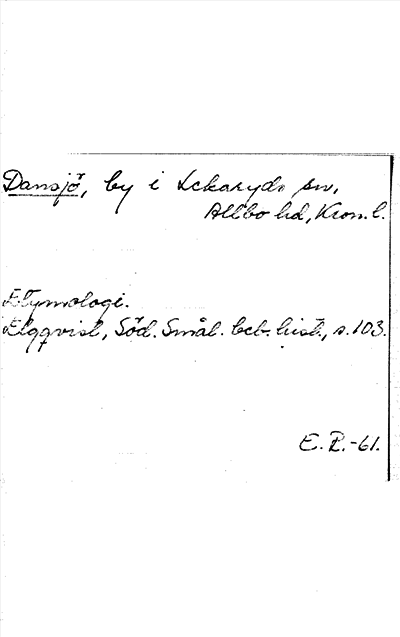 Dansjö, by i Lekaryds sn,
Allbo hd, Kron. l.
Etymologi.
Elgqvist, Söd. Smål. beb. hist., s. 103.
E. E.-61.